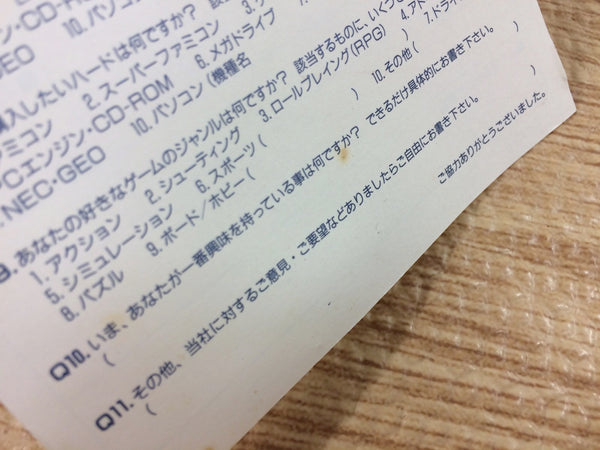 ン・CD-RO
10.パソコン
GEO
購入したいハードは何ですか? 該
ァミコン 2.スーパーファミコン 3.
PCエンジン・CD-ROM 6.メガドライブ
.NEC・GEO 10.パソコン(機種名
9.あなたの好きなゲームのジャンルは何ですか? 該当するものに、いくつ
1.アクション 2.シューティング 3.ロールプレイング(RPG) 4.アド
5.シミュレーション 6.スポーツ( ) 7.ドライ
8.パズル 9.ボード/ホビー( ) 10.その他(
Q10.いま、あなたが一番興味を持っている事は何ですか? できるだけ具体的にお書き下さい。
( )
Q11.その他、当社に対するご意見・ご要望などありましたらご自由にお書き下さい。
(
ご協力ありがとうございました。